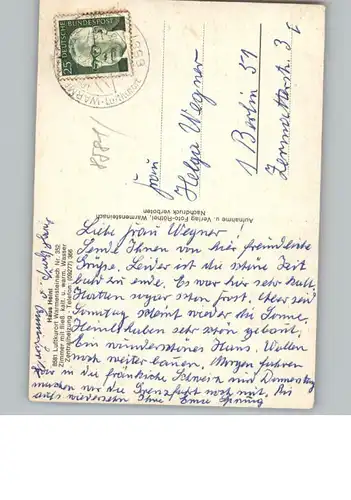 DEUTSCHE BUNDESPOST
25
Frau
Helga Wegner
1 Berlin 51
8581/
Aufnahme u. Verlag Foto-Röthel, Warmensteinach
Nachdruck verboten
Haus Heinl
8581 Luftkurort Warmensteinach Nr. 352
Zimmer mit fließ. kalt. u. warm. Wasser
Zentralheizung - Telefon (09277) 386
Liebe Frau Wegner!
Sende Ihnen von hier freundliche
Grüße. Leider ist die schöne Zeit
bald zu ende. Es war hier sehr kalt
Hatten sogar schon frost. Aber seid
Sonntag scheint wieder die Sonne.
Heinels haben sehr schön gebaut.
Ein wunderschönes Haus. Wollen
noch weiter bauen. Morgen fahren
wir in die fränkische Schweiz und Donnerstag
machen wir die Grenzfahrt noch mit. Bis
aufs wiedersehn Ihre Erna